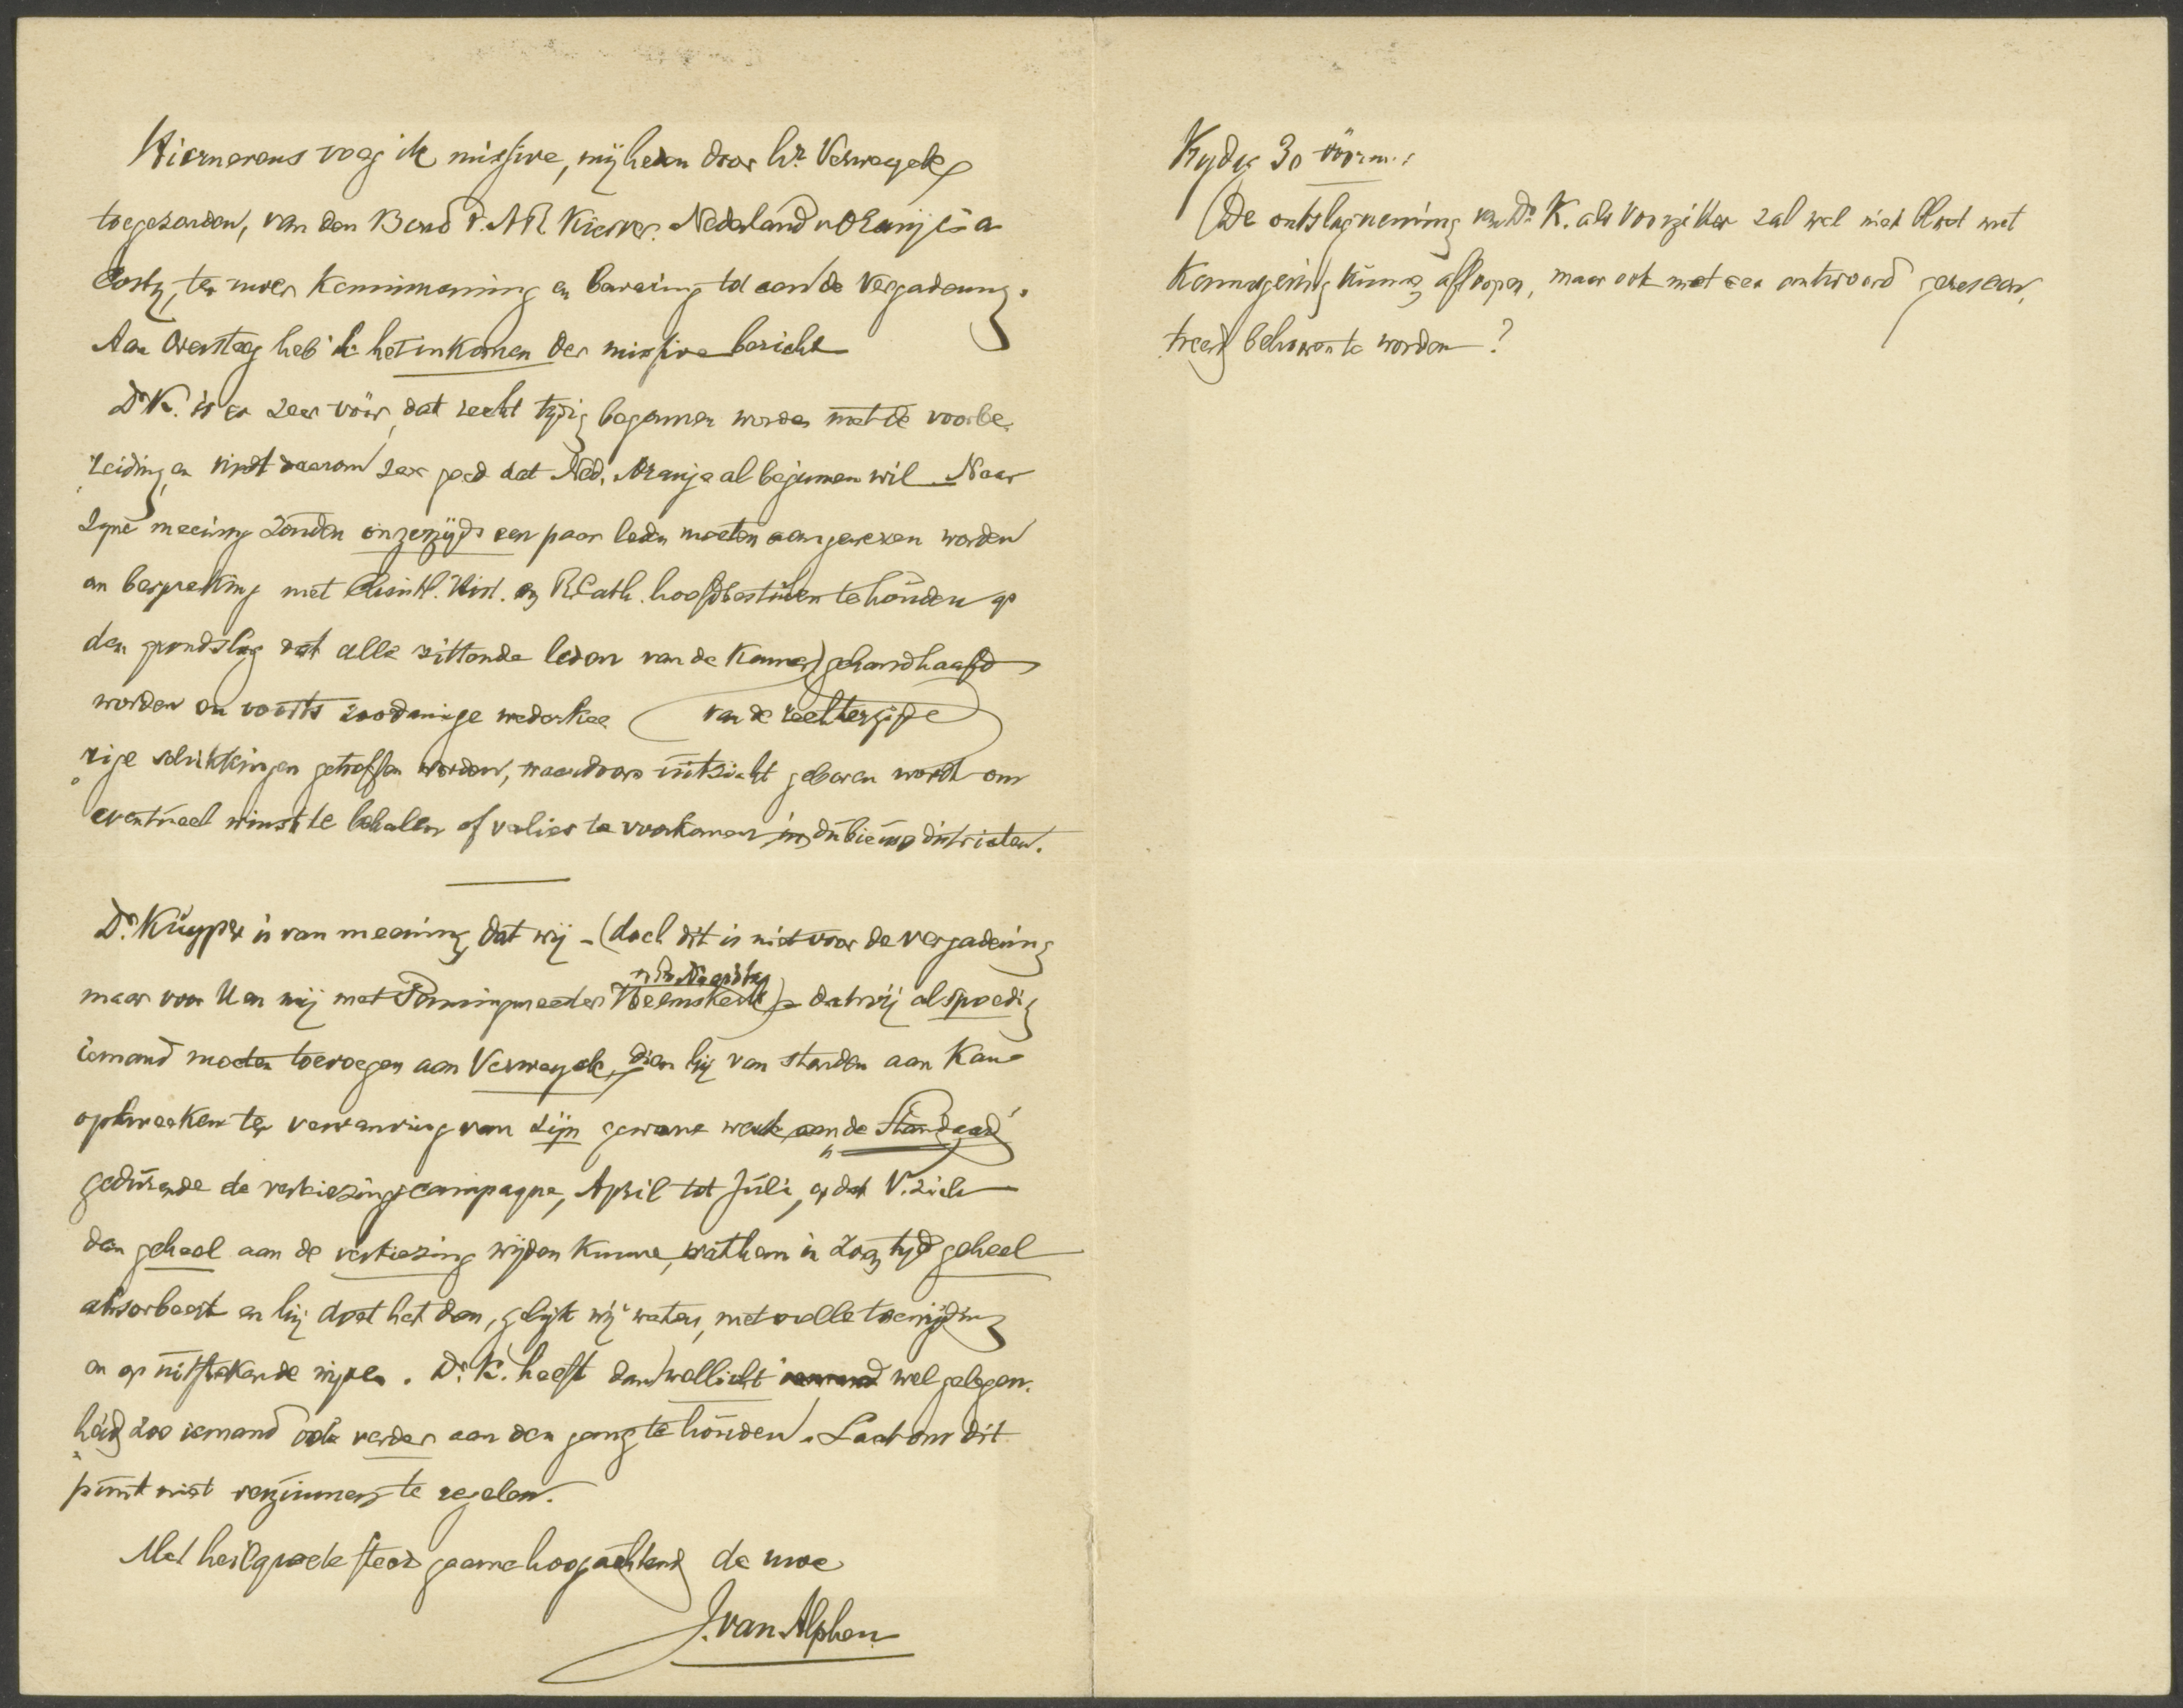 Hiernevens voeg ik missive, mij heden door hr. Verweyck
toegezonden, van den Bond v. AR Kiesver. Nederland en Oranje a
Costa, ter uwer kennisneming en bewaring tot aan de Vergadering.
Aan Oversteeg heb ik het inkomen der missive bericht
Dr K. is er zeer vóór, dat recht tijdig begonnen worde met de voorbe-
reiding en vindt daarom zeer goed dat Ned. Oranje al beginnen wil. Naar
zijne meening zouden onzerzijds een paar leden moeten aangewezen worden
om bespreking met Christ. Hist. en R. Cath. hoofdbesturen te houden op
den grondslag dat alle zittende leden van de Kamer gehandhaafd
worden en voorts zoodanige wederkee- (van de rechterzijde)
rige schikkingen getroffen worden, waardoor uitzicht geboren wordt om
eventueel winst te behalen of verlies te voorkomen in dubieuse districten.
Dr. Kuyper is van meening, dat wij - (doch dit is niet voor de vergadering
en Dr
maar voor U en mij met Penningmeester Heemskerk) - dat wij al spoedig
iemand moeten toevoegen aan Verweyck, dien hij van stonden aan kan
opkweeken ter vervanging van zijn gewone werk aan de „Standaard"
gedurende de verkiezingscampagne, April tot Juli, opdat V. zich
dan geheel aan de verkiezing wijden kunne, wat hem in zoon tijd geheel
absorbeert en hij doet het dan, gelijk wij weten, met volle toewijding
en op uitstekende wijze. Dr. K. heeft dan wellicht wel gelegen-
heid zoo iemand ook verder aan den gang te houden. Laat ons dit
punt niet verzuimen te regelen.
Met heilgroete steeds gaarne hoogachtend de uwe
J. van Alphen
Vrijdag 30 vóórm.:
De ontslagneming van Dr K. als Voorzitter zal wel niet bloot met
kennisgeving kunnen afloopen, maar ook met een antwoord gerescon-
treerd behooren te worden?